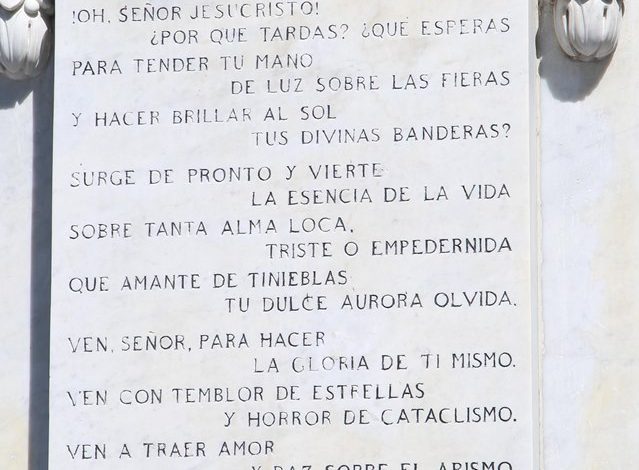 !OH, SEÑOR JESUCRISTO!
¿POR QUE TARDAS? ¿QUE ESPERAS
PARA TENDER TU MANO
DE LUZ SOBRE LAS FIERAS
Y HACER BRILLAR AL SOL
TUS DIVINAS BANDERAS?
SURGE DE PRONTO Y VIERTE
LA ESENCIA DE LA VIDA
SOBRE TANTA ALMA LOCA,
TRISTE O EMPEDERNIDA
QUE AMANTE DE TINIEBLAS
TU DULCE AURORA OLVIDA.
VEN, SEÑOR, PARA HACER
LA GLORIA DE TI MISMO.
VEN CON TEMBLOR DE ESTRELLAS
Y HORROR DE CATACLISMO.
VEN A TRAER AMOR
Y PAZ SOBRE EL ABISMO